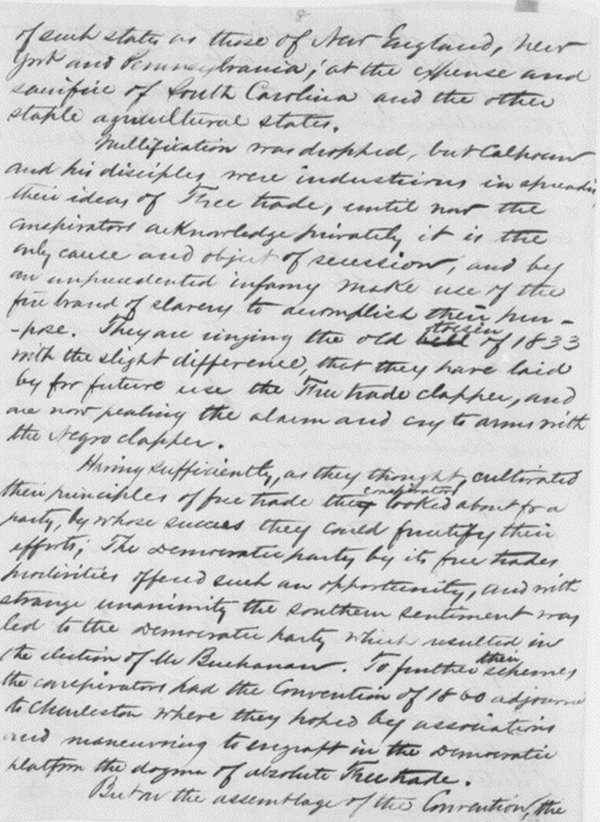 8
of such states as those of New England, New
York and Pennsylvania; at the expense and
sacrifice of South Carolina and the other
staple agricultural states.
Nullification was dropped, but Calhoun
and his disciples were industrious in spreading
their ideas of Free trade, until now the
conspirators acknowledge privately it is the
only cause and object of secession, and by
an unprecedented infamy make use of the
fire brand of slavery to accomplish their pur-
-pose. They are ringing the old of 1833
with the slight difference, that they have laid
by for future use the Free trade clapper, and
are now pealing the alarm and cry to arms with
the Negro clapper.
Having sufficiently, as they thought, cultivated
their principles of free trade the conspirators looked about for a
party, by whose success they could fructify their
efforts; The Democratic party by its free trades
proclivities offered such an opportunity, and with
strange unanimity the southern sentiment was
led to the Democratic party which resulted in
the election of Mr Buchanan. To further their schemes
the conspirators had the Convention of 1860 adjourned
to Charleston where they hoped by associations
and maneuvring to engraft in the Democratic
platform the dogma of absolute Free trade.
But on the assemblage of the Convention, the